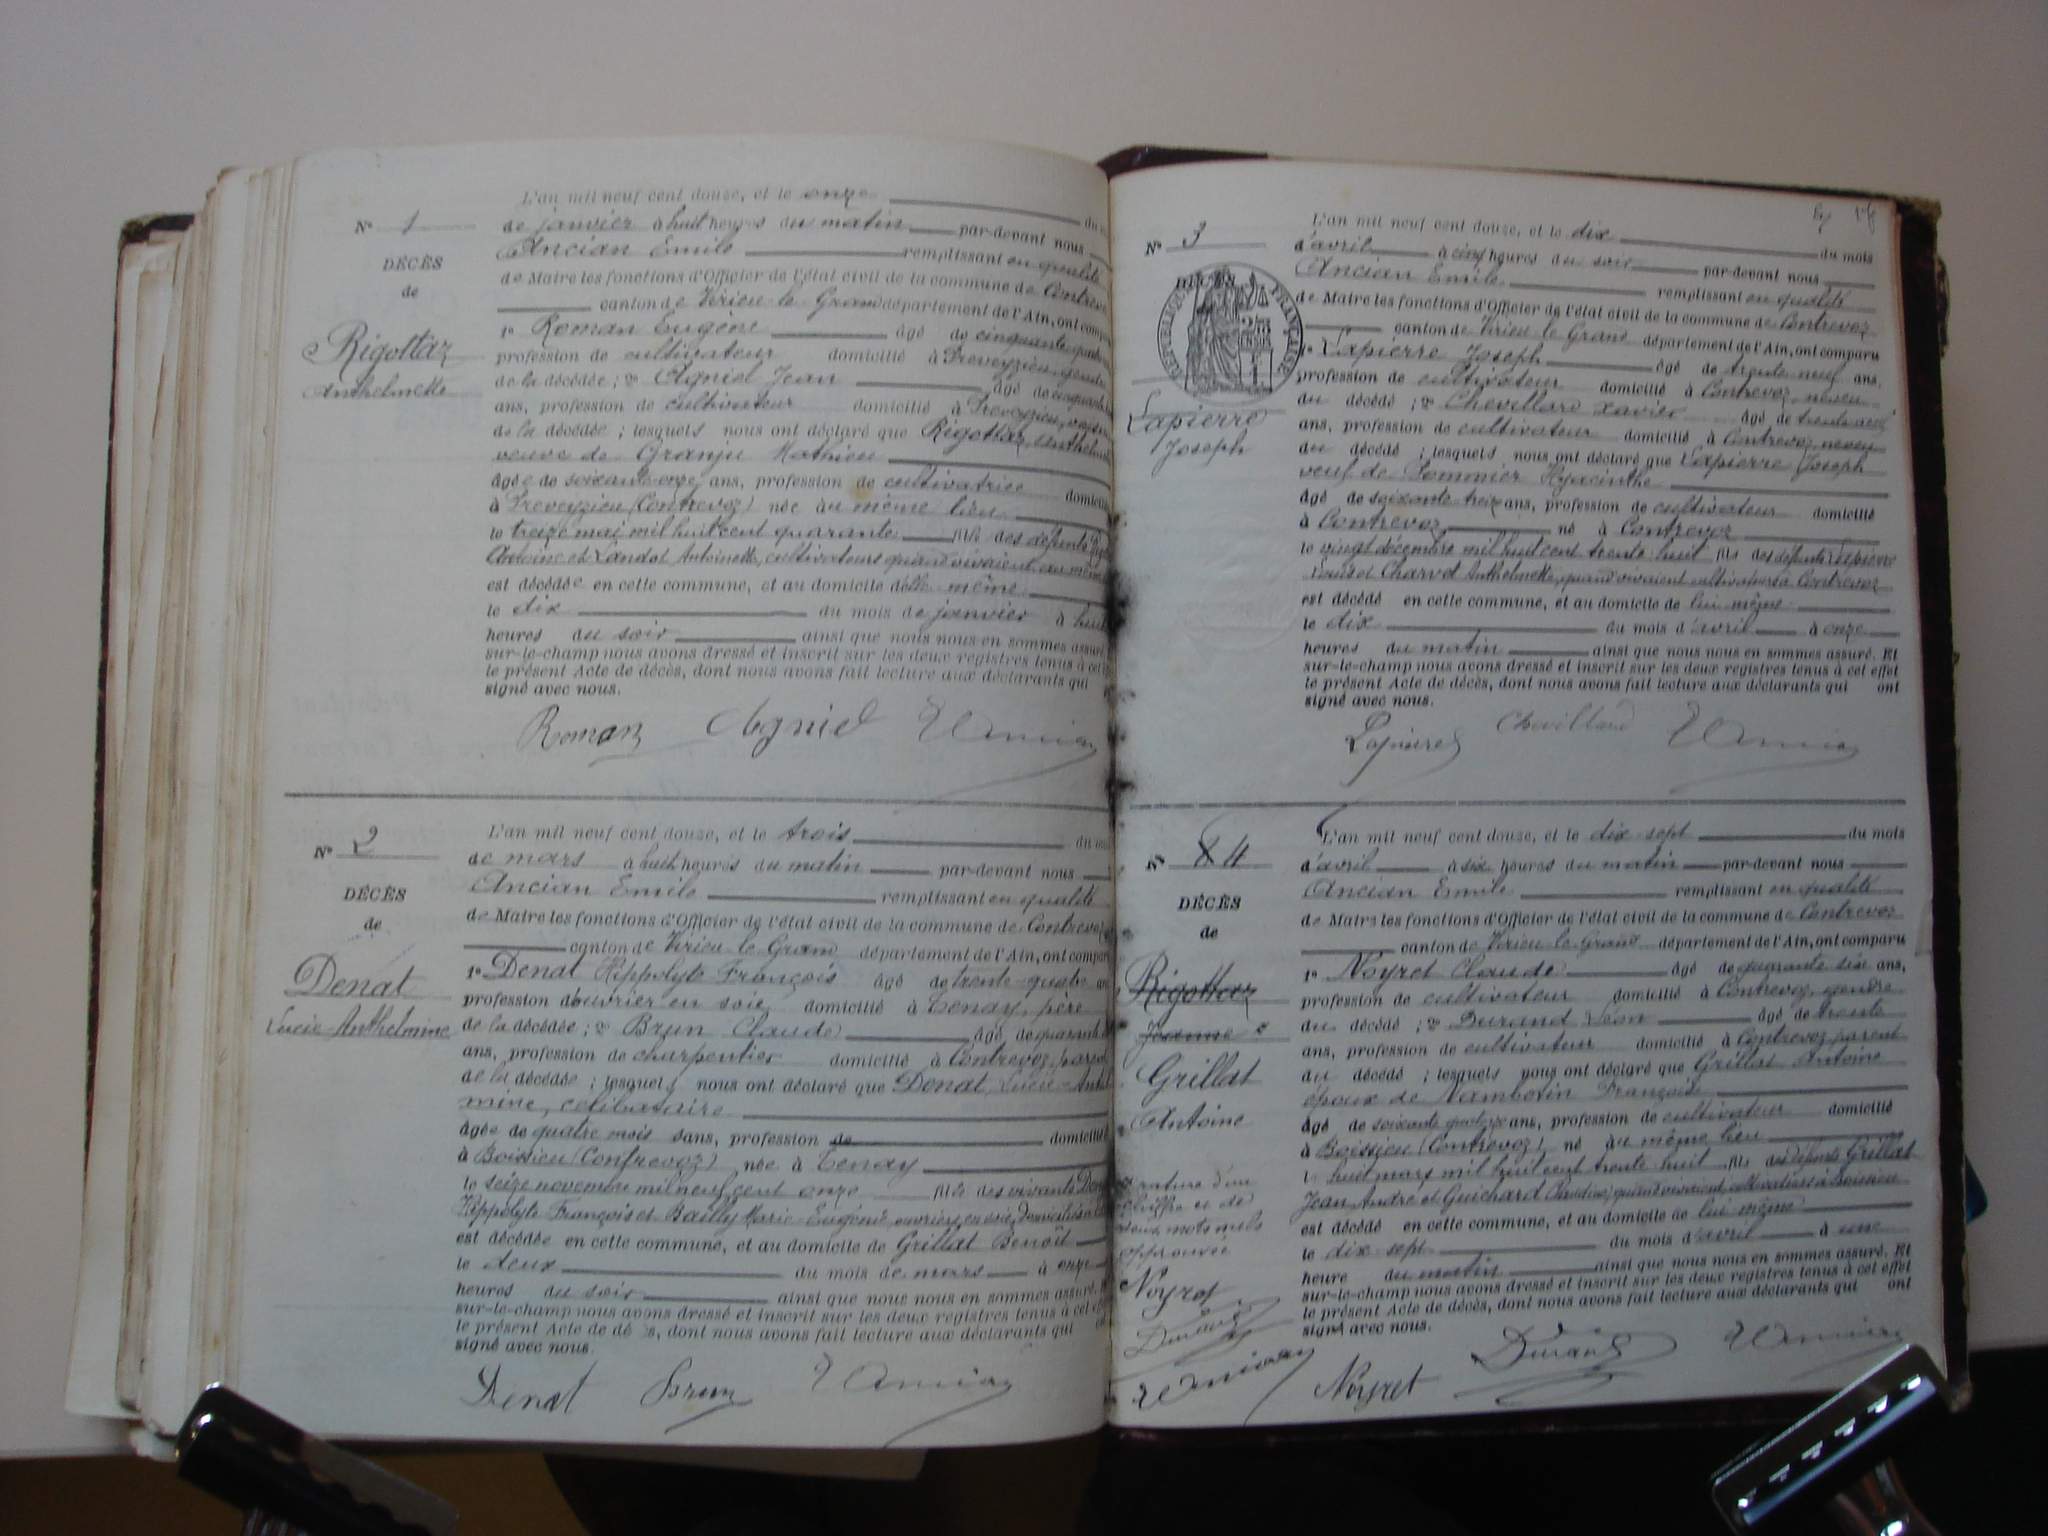 L'an mil neuf cent douze, et le onze du
Nº 1
de janvier à huit heures du matin par-devant nous
Ancian Emile remplissant en qualité
DÉCÈS
de Maire les fonctions d'Officier de l'état civil de la commune de Contrevoz
de
canton de Virieu-le-Grand département de l'Ain, ont comparu
1º Roman Eugène âgé de cinquante-quatre
Rigottaz
profession de cultivateur domicilié à Preveyzieu, gendre
Anthelmette
de la décédée ; 2º Agniel Jean âgé de cinquante
ans, profession de cultivateur domicilié à Preveyzieu, voisin
de la décédée ; lesquels nous ont déclaré que Rigottaz Anthelmette
veuve de Granju Mathieu
âgée de soixante-onze ans, profession de cultivatrice domiciliée
à Preveyzieu (Contrevoz) née au même lieu
le treize mai mil huit cent quarante fille des défunts
Antoine et Landot Antoinette, cultivateurs quand vivaient au même
est décédée en cette commune, et au domicile d'elle-même
le dix du mois de janvier à huit
heures du soir ainsi que nous nous en sommes assuré.
sur-le-champ nous avons dressé et inscrit sur les deux registres tenus à cet
le présent Acte de décès, dont nous avons fait lecture aux déclarants qui
signé avec nous.
Roman Agniel E Ancian
L'an mil neuf cent douze, et le trois du
Nº 2
de mars à huit heures du matin par-devant nous
Ancian Emile remplissant en qualité
DÉCÈS
de Maire les fonctions d'Officier de l'état civil de la commune de Contrevoz
de
canton de Virieu-le-Grand département de l'Ain, ont comparu
1º Denat Hippolyte François âgé de trente-quatre
Denat
profession d'ouvrier en soie domicilié à Tenay, père
Lucie-Anthelmine
de la décédée ; 2º Brun Claude âgé de quarante
ans, profession de charpentier domicilié à Contrevoz, parent
de la décédée ; lesquels nous ont déclaré que Denat Lucie-Anthel
mine, célibataire
âgée de quatre mois sans, profession de domiciliée
à Boissieu (Contrevoz) née à Tenay
le seize novembre mil neuf cent onze fille des vivants Denat
Hippolyte François et Bailly Marie-Eugénie ouvriers en soie, domiciliés à
est décédée en cette commune, et au domicile de Grillat Benoît
le deux du mois de mars à onze
heures du soir ainsi que nous nous en sommes assuré.
sur-le-champ nous avons dressé et inscrit sur les deux registres tenus à cet
le présent Acte de décès, dont nous avons fait lecture aux déclarants qui
signé avec nous.
Denat Brun E Ancian
L'an mil neuf cent douze, et le dix du mois
Nº 3
d'avril à cinq heures du soir par-devant nous
Ancian Emile remplissant en qualité
DÉCÈS
RÉPUBLIQUE FRANÇAISE
de Maire les fonctions d'Officier de l'état civil de la commune de Contrevoz
canton de Virieu-le-Grand département de l'Ain, ont comparu
1º Lapierre Joseph âgé de trente-neuf ans,
profession de cultivateur domicilié à Contrevoz, neveu
Lapierre
du décédé ; 2º Chevillard Xavier âgé de trente
Joseph
ans, profession de cultivateur domicilié à Contrevoz, neveu
du décédé ; lesquels nous ont déclaré que Lapierre Joseph
veuf de Pommier Hyacinthe
âgé de soixante-treize ans, profession de cultivateur domicilié
à Contrevoz né à Contrevoz
le vingt décembre mil huit cent trente-huit fils des défunts Lapierre
Louis et Charvet Anthelmette, quand vivaient cultivateurs à Contrevoz
est décédé en cette commune, et au domicile de lui-même
le dix du mois d'avril à onze
heures du matin ainsi que nous nous en sommes assuré. Et
sur-le-champ nous avons dressé et inscrit sur les deux registres tenus à cet effet
le présent Acte de décès, dont nous avons fait lecture aux déclarants qui ont
signé avec nous.
Lapierre J Chevillard E Ancian
L'an mil neuf cent douze, et le dix-sept du mois
Nº 8 4
d'avril à six heures du matin par-devant nous
Ancian Emile remplissant en qualité
DÉCÈS
de Maire les fonctions d'Officier de l'état civil de la commune de Contrevoz
de
canton de Virieu-le-Grand département de l'Ain, ont comparu
1º Noyret Claude âgé de quarante-six ans,
Rigottaz
profession de cultivateur domicilié à Contrevoz, gendre
Jeanne
du décédé ; 2º Durand Léon âgé de trente
ans, profession de cultivateur domicilié à Contrevoz, parent
Grillat
du décédé ; lesquels nous ont déclaré que Grillat Antoine
époux de Nambotin Françoise
Antoine
âgé de soixante-quatorze ans, profession de cultivateur domicilié
à Boissieu (Contrevoz) né au même lieu
le huit mars mil huit cent trente-huit fils des défunts Grillat
rature d'un
Jean André et Guichard Claudine, quand vivaient cultivateurs à Boissieu
chiffre et de
est décédé en cette commune, et au domicile de lui-même
deux mots nuls
le dix-sept du mois d'avril à une
approuvée
heure du matin ainsi que nous nous en sommes assuré. Et
Noyret
sur-le-champ nous avons dressé et inscrit sur les deux registres tenus à cet effet
le présent Acte de décès, dont nous avons fait lecture aux déclarants qui ont
Durand
signé avec nous.
E Ancian
Noyret Durand E Ancian